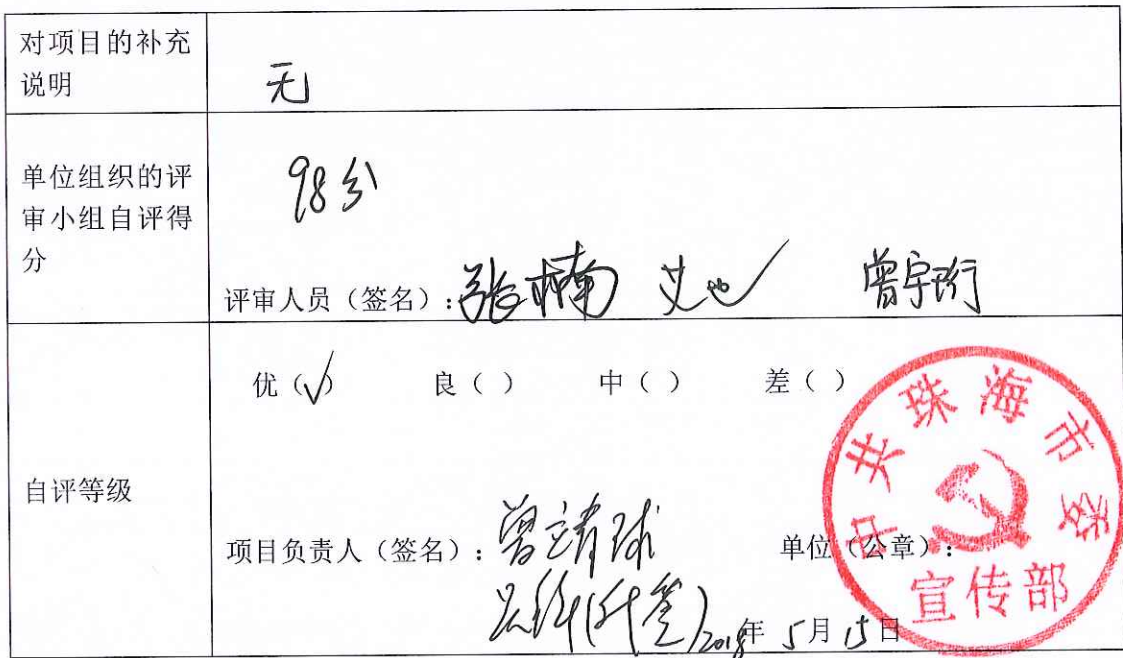 对项目的补充
说明
无
单位组织的评
审小组自评得
分
98分
评审人员（签名）：张楠 曾宇珩
自评等级
优（√） 良（ ） 中（ ） 差（ ）
项目负责人（签名）：曾靖球
(代签)
单位（公章）：
2018年 5月 15日
中共珠海市委
宣传部